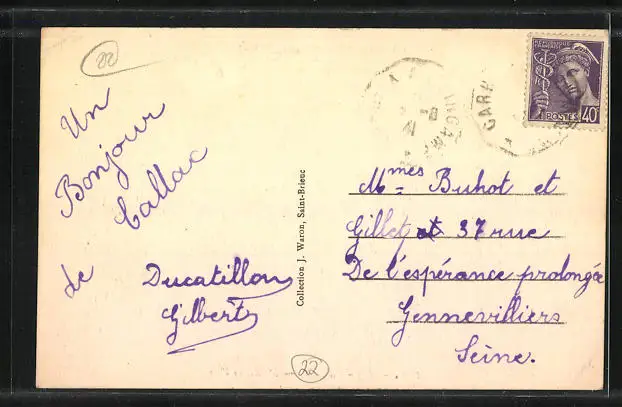 22
Un
Bonjour
de Callac
Ducatillon
Gilbert
Collection J. Waron, Saint-Brieuc
GARE
REPUBLIQUE FRANÇAISE
POSTES 40
Mmes Buhot et
Gillet et 37 rue
De l'espérance prolongée
Gennevilliers
Seine.
22